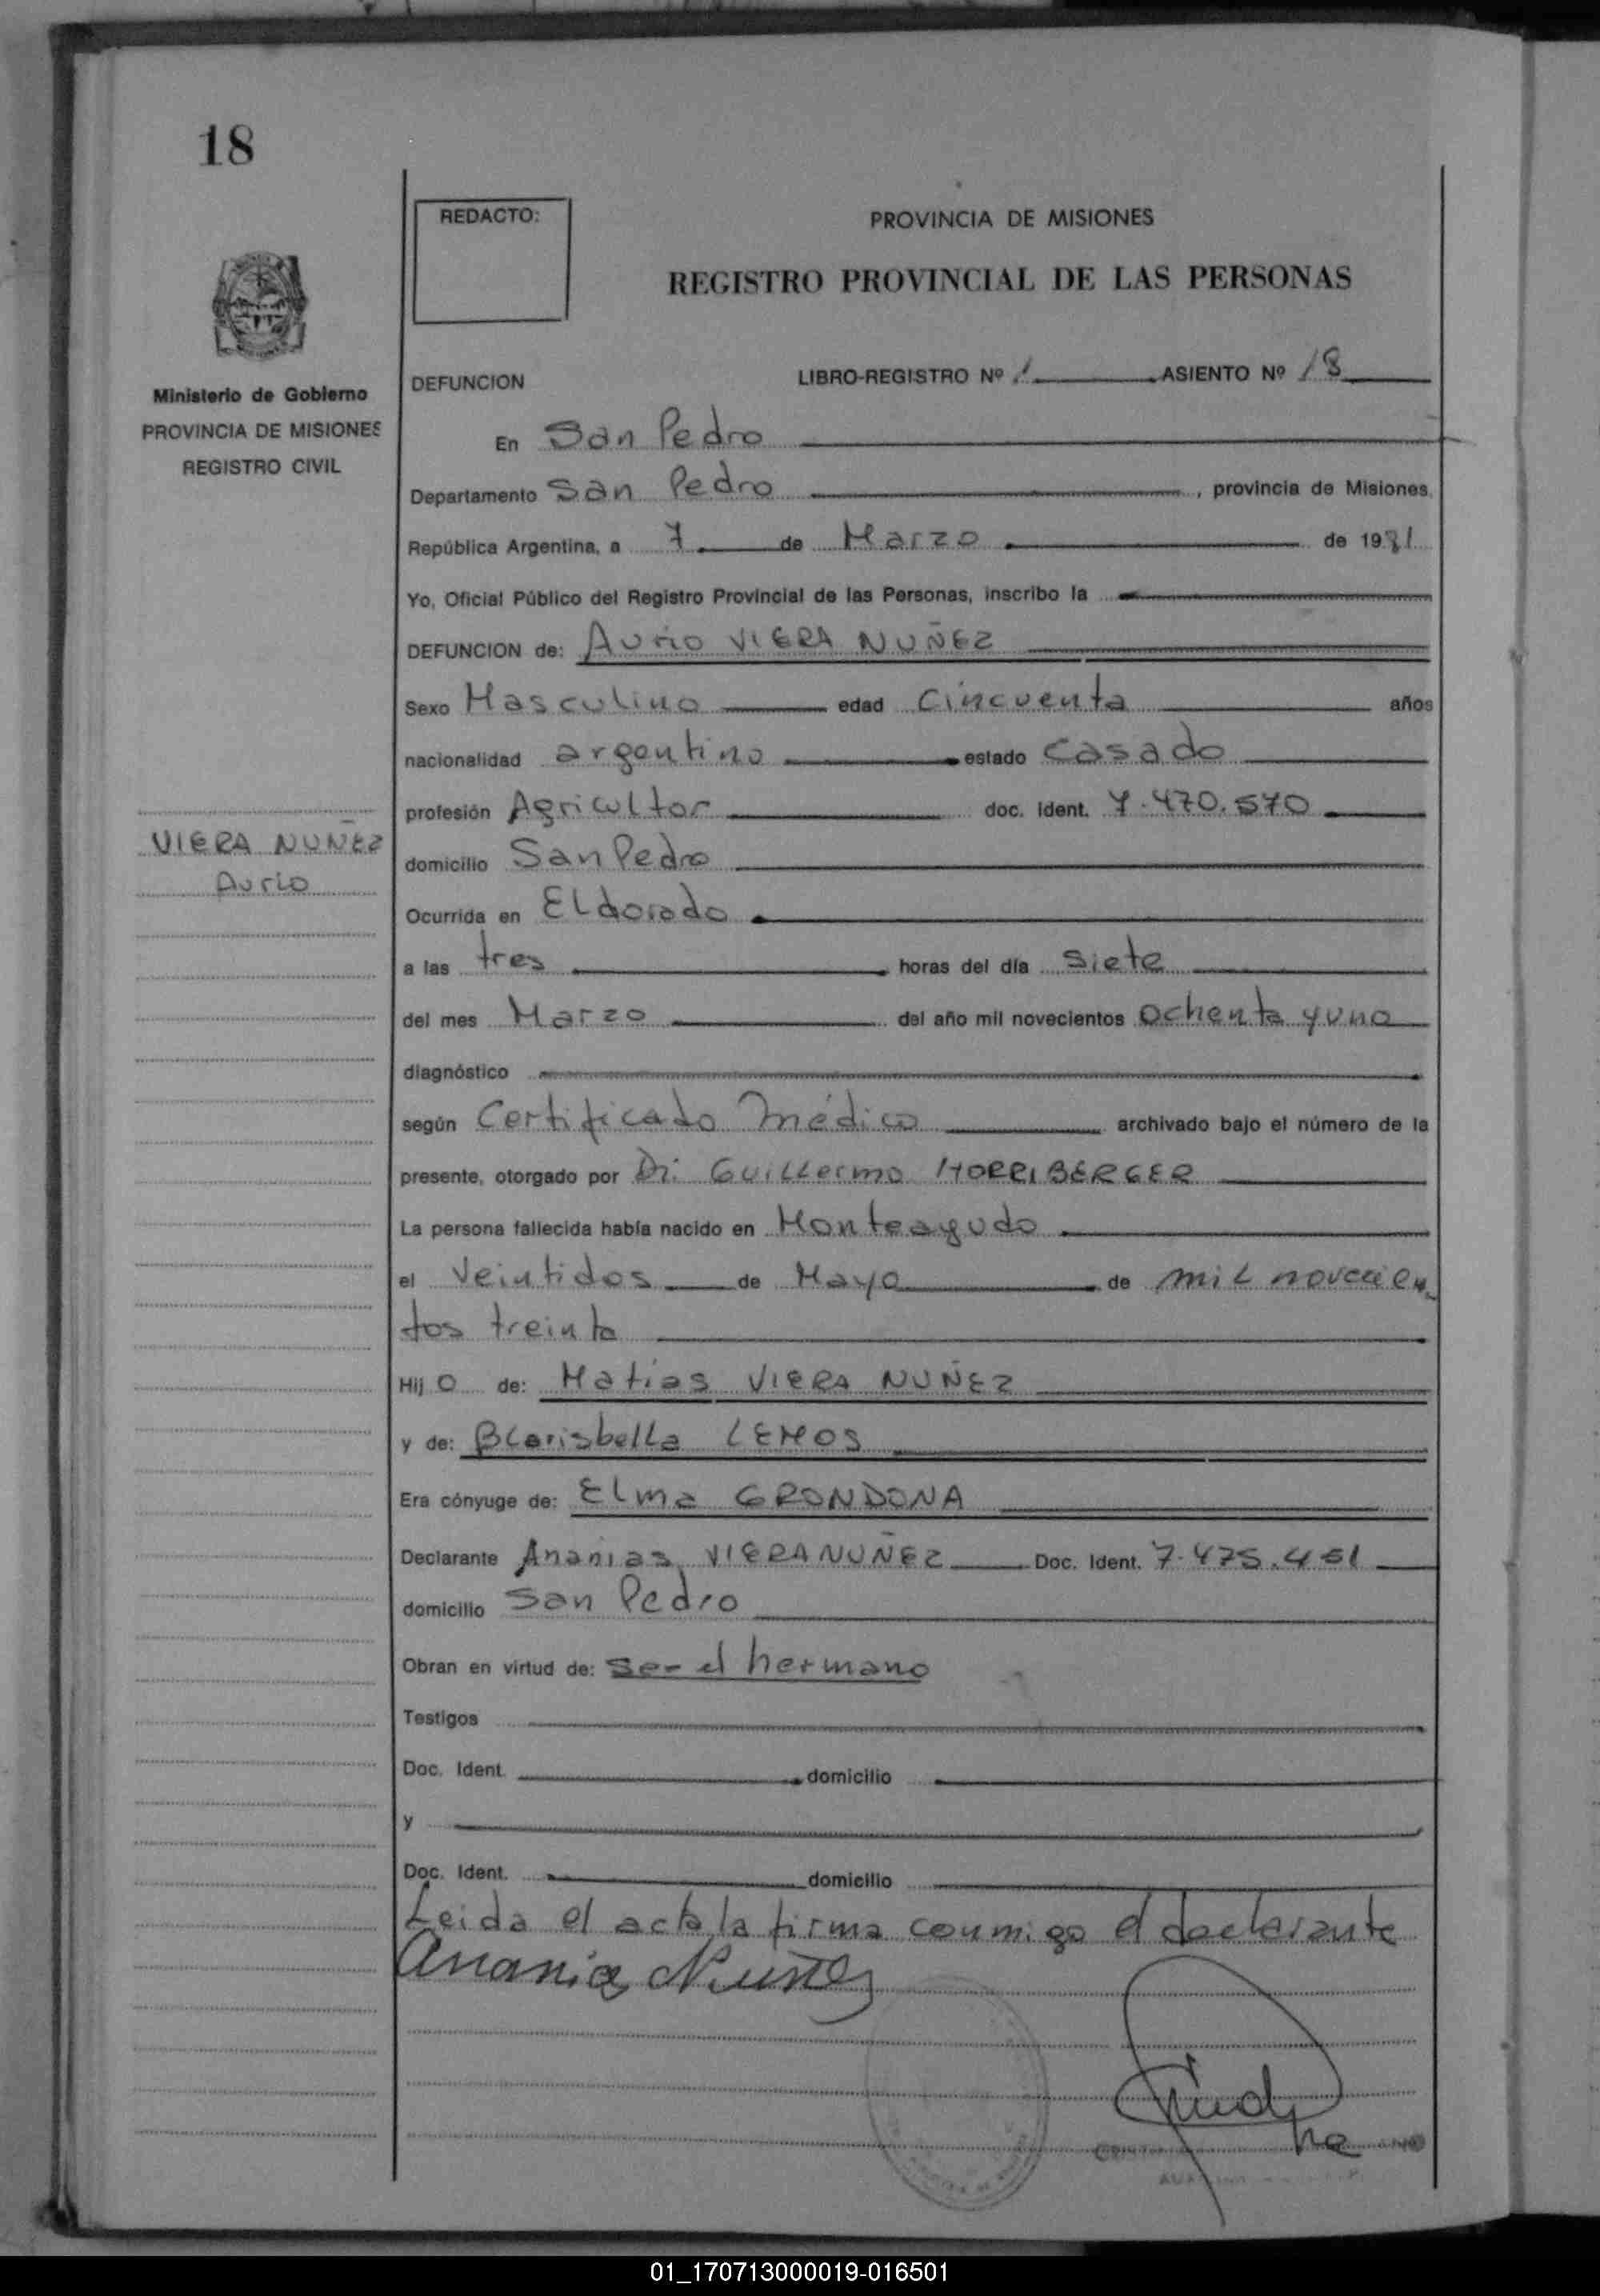 18
REDACTO:
PROVINCIA DE MISIONES
REGISTRO PROVINCIAL DE LAS PERSONAS
Ministerio de Gobierno
PROVINCIA DE MISIONES
REGISTRO CIVIL
DEFUNCION LIBRO-REGISTRO Nº 1 ASIENTO Nº 18
En San Pedro
Departamento San Pedro, provincia de Misiones,
República Argentina, a 7 de Marzo de 1981
Yo, Oficial Público del Registro Provincial de las Personas, inscribo la
DEFUNCION de: Aurio VIERA NUÑEZ
Sexo Masculino edad Cincuenta años
nacionalidad argentino estado Casado
profesión Agricultor doc. Ident. 7.470.570
VIERA NUÑEZ
Aurio
domicilio San Pedro
Ocurrida en ELdorado
a las tres horas del día siete
del mes Marzo del año mil novecientos ochenta y uno
diagnóstico
según Certificado Médico archivado bajo el número de la
presente, otorgado por Dr. GuiLLermo HORRIBERGER
La persona fallecida había nacido en Monteagudo
el Veintidos de Mayo de mil novecien
tos treinta
Hijo de: Matias VIERA NUÑEZ
y de: BLarisbella LEMOS
Era cónyuge de: Elma GRONDONA
Declarante Ananias VIERA NUÑEZ Doc. Ident. 7.475.451
domicilio San Pedro
Obran en virtud de: ser el hermano
Testigos
Doc. Ident. domicilio
y
Doc. Ident. domicilio
Leida el acta la firma conmigo el declarante
Anania Nuñez
01_170713000019-016501